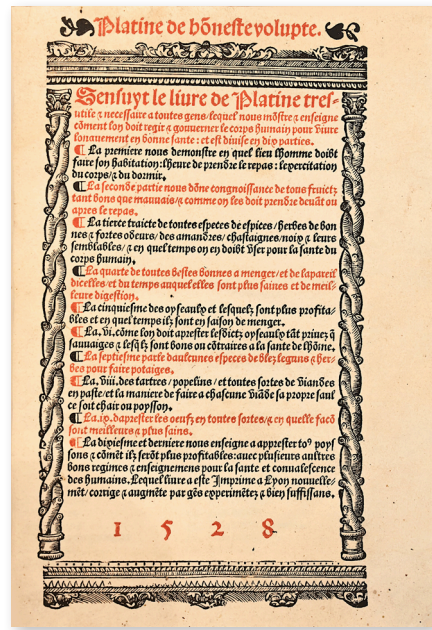 Platine de hõneste volupte.
Sensuyt le liure de Platine tres-
utile ⁊ necessaire a toutes gens/lequel nous mõstre ⁊ enseigne
cõment lon doit regir ⁊ gouuerner le corps humain pour viure
longuement en bonne sante : et est diuise en dix parties.
¶ La premiere nous demonstre en quel lieu lhomme doibt
faire son habitation: lheure de prendre le repas: lexercitation
du corps/⁊ du dormir.
¶ La seconde partie nous dõne congnoissance de tous fruictz
tant bons que mauuais/⁊ comme on les doit prendre deuãt ou
apres le repas.
¶ La tierce traicte de toutes especes de espices/herbes de bon
nes ⁊ fortes odeurs/des amandres/chastaignes/noix ⁊ leurs
semblables/⁊ en quel temps on en doibt vser pour la sante du
corps humain.
¶ La quarte de toutes bestes bonnes a menger/et de lapareil
dicelles/et du temps auquel elles sont plus saines et de meil-
leure digestion.
¶ La cinquiesme des oyseaulx et lesquelz sont plus profita-
bles et en quel temps ilz sont en saison de menger.
¶ La .vi. cõme lon doit aprester lesdictz oyseaulx tãt priuez q̃
sauuaiges ⁊ lesq̃lz sont bons ou cõtraires a la sante de lhõme.
¶ La septiesme parle daulcunes especes de blez legums ⁊ her-
bes pour faire potaiges.
¶ La .viii. des tartres/popelins/et toutes sortes de viandes
en paste/et la maniere de faire a chascune viãde sa propre saul
ce soit chair ou poysson.
¶ La .ix. daprester les oeufz en toutes sortes/⁊ en quelle facõ
sont meilleurs ⁊ plus sains.
¶ La dixiesme et derniere nous enseigne a apprester toꝰ poys
sons ⁊ cõmẽt ilz serõt plus profitables: auec plusieurs aultres
bons regimes ⁊ enseignemens pour la sante et conualescence
des humains. Lequel liure a este Imprime a Lyon nouuelle-
mẽt/corrige ⁊ augmẽte par gẽs experimẽtez ⁊ bien suffissans.
1528